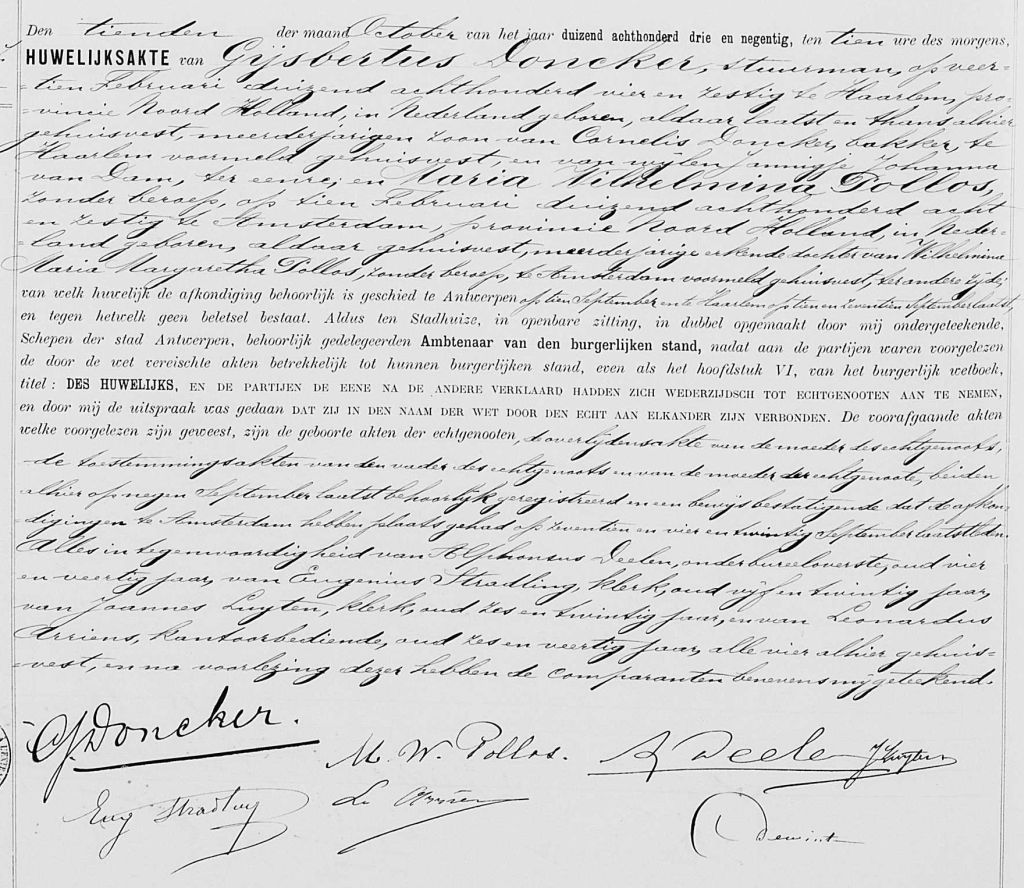 Den tienden der maand October van het jaar duizend achthonderd drie en negentig, ten tien ure des morgens,
HUWELIJKSAKTE van Gijsbertus Doncker, stuurman, op veer-
-tien Februari duizend achthonderd vier en zestig te Haarlem, pro-
-vincie Noord Holland, in Nederland geboren, aldaar laatst en thans alhier
gehuisvest, meerderjarigen zoon van Cornelis Doncker, bakker, te
Haarlem voormeld gehuisvest, en van wijlen Jannigje Johanna
van Dam, ter eenre; en Maria Wilhelmina Pollos,
zonder beroep, op tien Februari duizend achthonderd acht
en zestig te Amsterdam, provincie Noord Holland, in Neder-
-land geboren, aldaar gehuisvest, meerderjarige erkende dochter van Wilhelmina
Maria Margaretha Pollos, zonder beroep, te Amsterdam voormeld gehuisvest, ter andere zijde;
van welk huwelijk de afkondiging behoorlijk is geschied te Antwerpen op tien September en te Haarlem op tien en zeventien September laatst,
en tegen hetwelk geen beletsel bestaat. Aldus ten Stadhuize, in openbare zitting, in dubbel opgemaakt door mij ondergeteekende,
Schepen der stad Antwerpen, behoorlijk gedelegeerden Ambtenaar van den burgerlijken stand, nadat aan de partijen waren voorgelezen
de door de wet vereischte akten betrekkelijk tot hunnen burgerlijken stand, even als het hoofdstuk VI, van het burgerlijk wetboek,
titel : DES HUWELIJKS, EN DE PARTIJEN DE EENE NA DE ANDERE VERKLAARD HADDEN ZICH WEDERZIJDSCH TOT ECHTGENOOTEN AAN TE NEMEN,
en door mij de uitspraak was gedaan DAT ZIJ IN DEN NAAM DER WET DOOR DEN ECHT AAN ELKANDER ZIJN VERBONDEN. De voorafgaande akten
welke voorgelezen zijn geweest, zijn de geboorte akten der echtgenooten, de overlijdensakte van de moeder des echtgenoots,
de toestemmingsakten van den vader des echtgenoots en van de moeder der echtgenoote, beiden
alhier op negen September laatst behoorlijk geregistreerd en een bewijs bestatigende dat de afkon-
digingen te Amsterdam hebben plaats gehad op zeventien en vier en twintig September laatstleden.
Alles in tegenwoordigheid van Alphonsus Deelen, onderbureeloverste, oud vier
en veertig jaar, van Eugenius Stradling, klerk, oud vijf en twintig jaar,
van Joannes Luyten, klerk, oud zes en twintig jaar, en van Leonardus
Arriens, kantoorbediende, oud zes en veertig jaar, alle vier alhier gehuis-
-vest, en na voorlezing dezer hebben de comparanten benevens mij geteekend.
G. Doncker.
M. W. Pollos.
A Deelen J Luyten
Eug Stradling